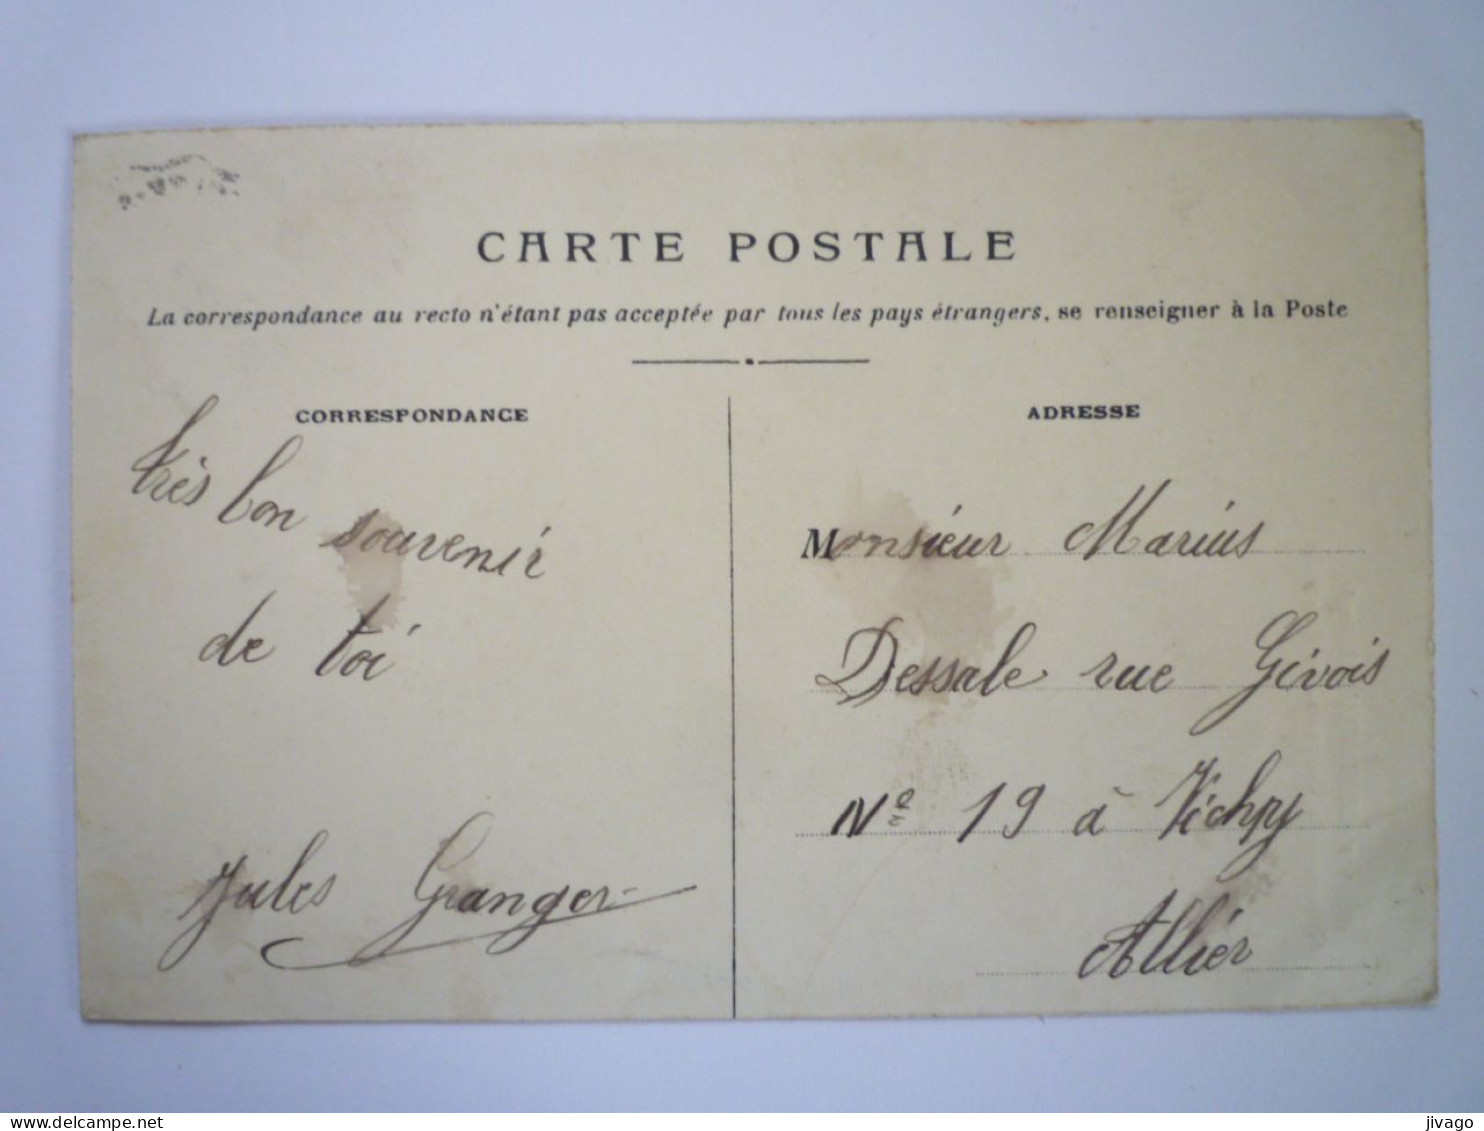 CARTE POSTALE
La correspondance au recto n'étant pas acceptée par tous les pays étrangers, se renseigner à la Poste
CORRESPONDANCE
très bon souvenir
de toi
Jules Granger
ADRESSE
Monsieur Marius
Dessale rue Givois
No 19 à Vichy
Allier
www.delcampe.net
jivago